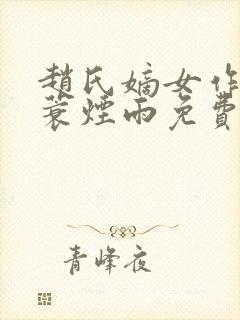 趙氏嫡女作
蓑煙雨免費
青峰夜